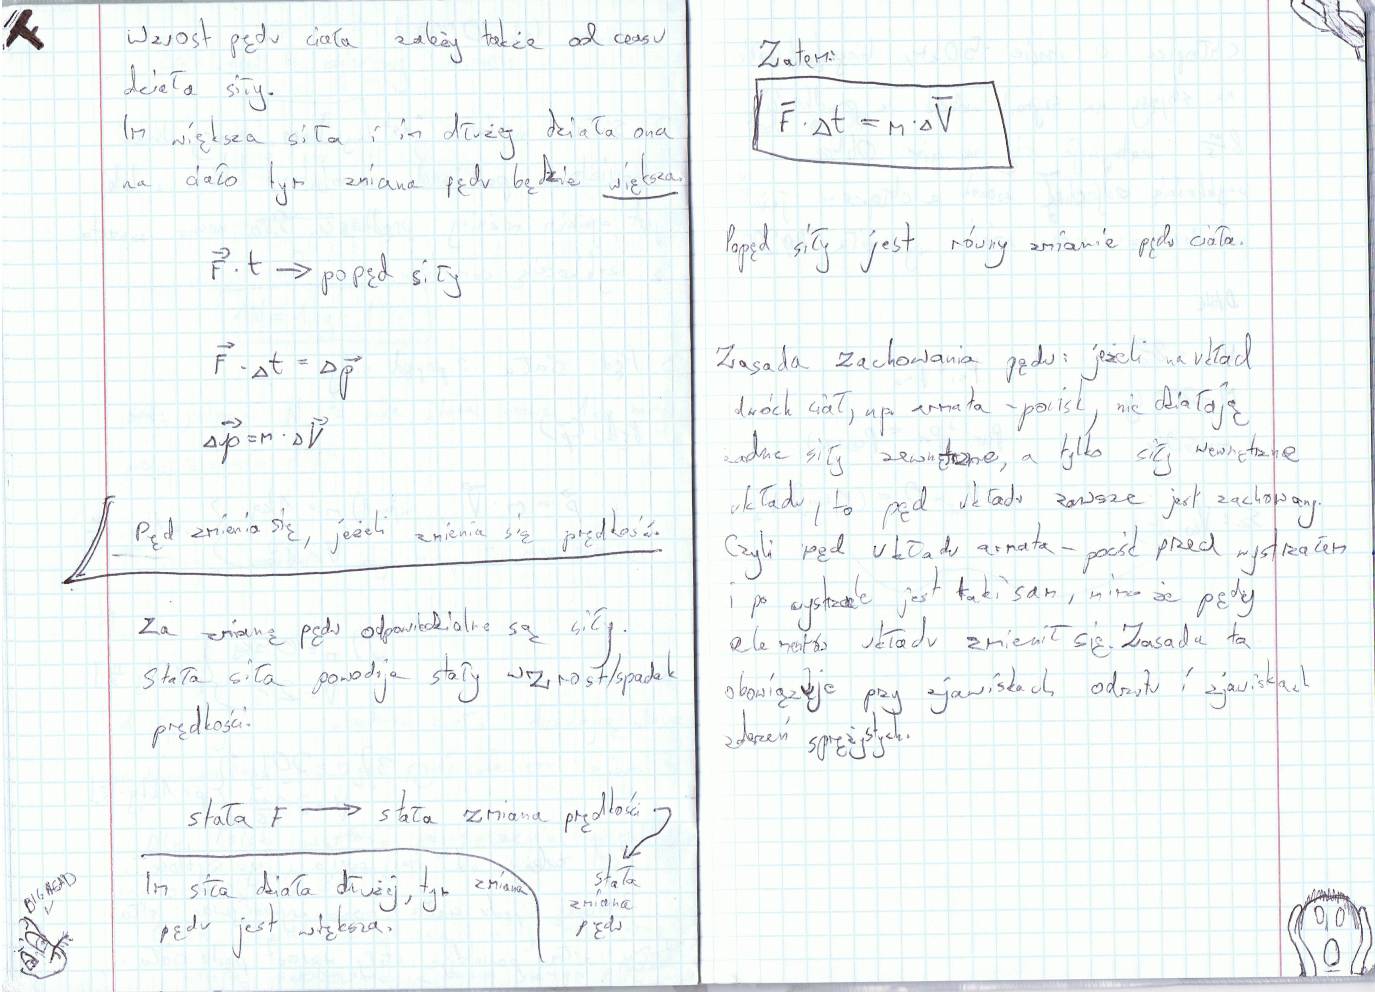 Wzrost pędu ciała zależy także od czasu
działa siły.
Im większa siła i im dłużej działa ona
na ciało tym zmiana pędu będzie większa.
F⃗ · t → popęd siły
F⃗ · Δt = Δp⃗
Δp⃗ = m · ΔV⃗
Pęd zmienia się, jeżeli zmienia się prędkość.
Za zmianę pędu odpowiedzialne są siły.
Stała siła powodija stały wzrost/spadek
prędkości.
stała F → stała zmiana prędkości
stała
zmiana
pędu
Im siła działa dłużej, tym zmiana
pędu jest większa.
BIG HEAD
Zatem:
F̅ · Δt = m · ΔV̅
Popęd siły jest równy zmianie pędu ciała.
Zasada zachowania pędu: jeżeli na układ
dwóch ciał, np. armata - pocisk, nie działają
żadne siły zewnętrzne, a tylko siły wewnętrzne
układu, to pęd układu zawsze jest zachowany.
Czyli pęd układu armata - pocisk przed wystrzałem
i po wystrzale jest taki sam, mimo że pędy
elementów układu zmienił się. Zasada ta
obowiązuje przy zjawiskach odrzutu i zjawiskach
zderzeń sprężystych.